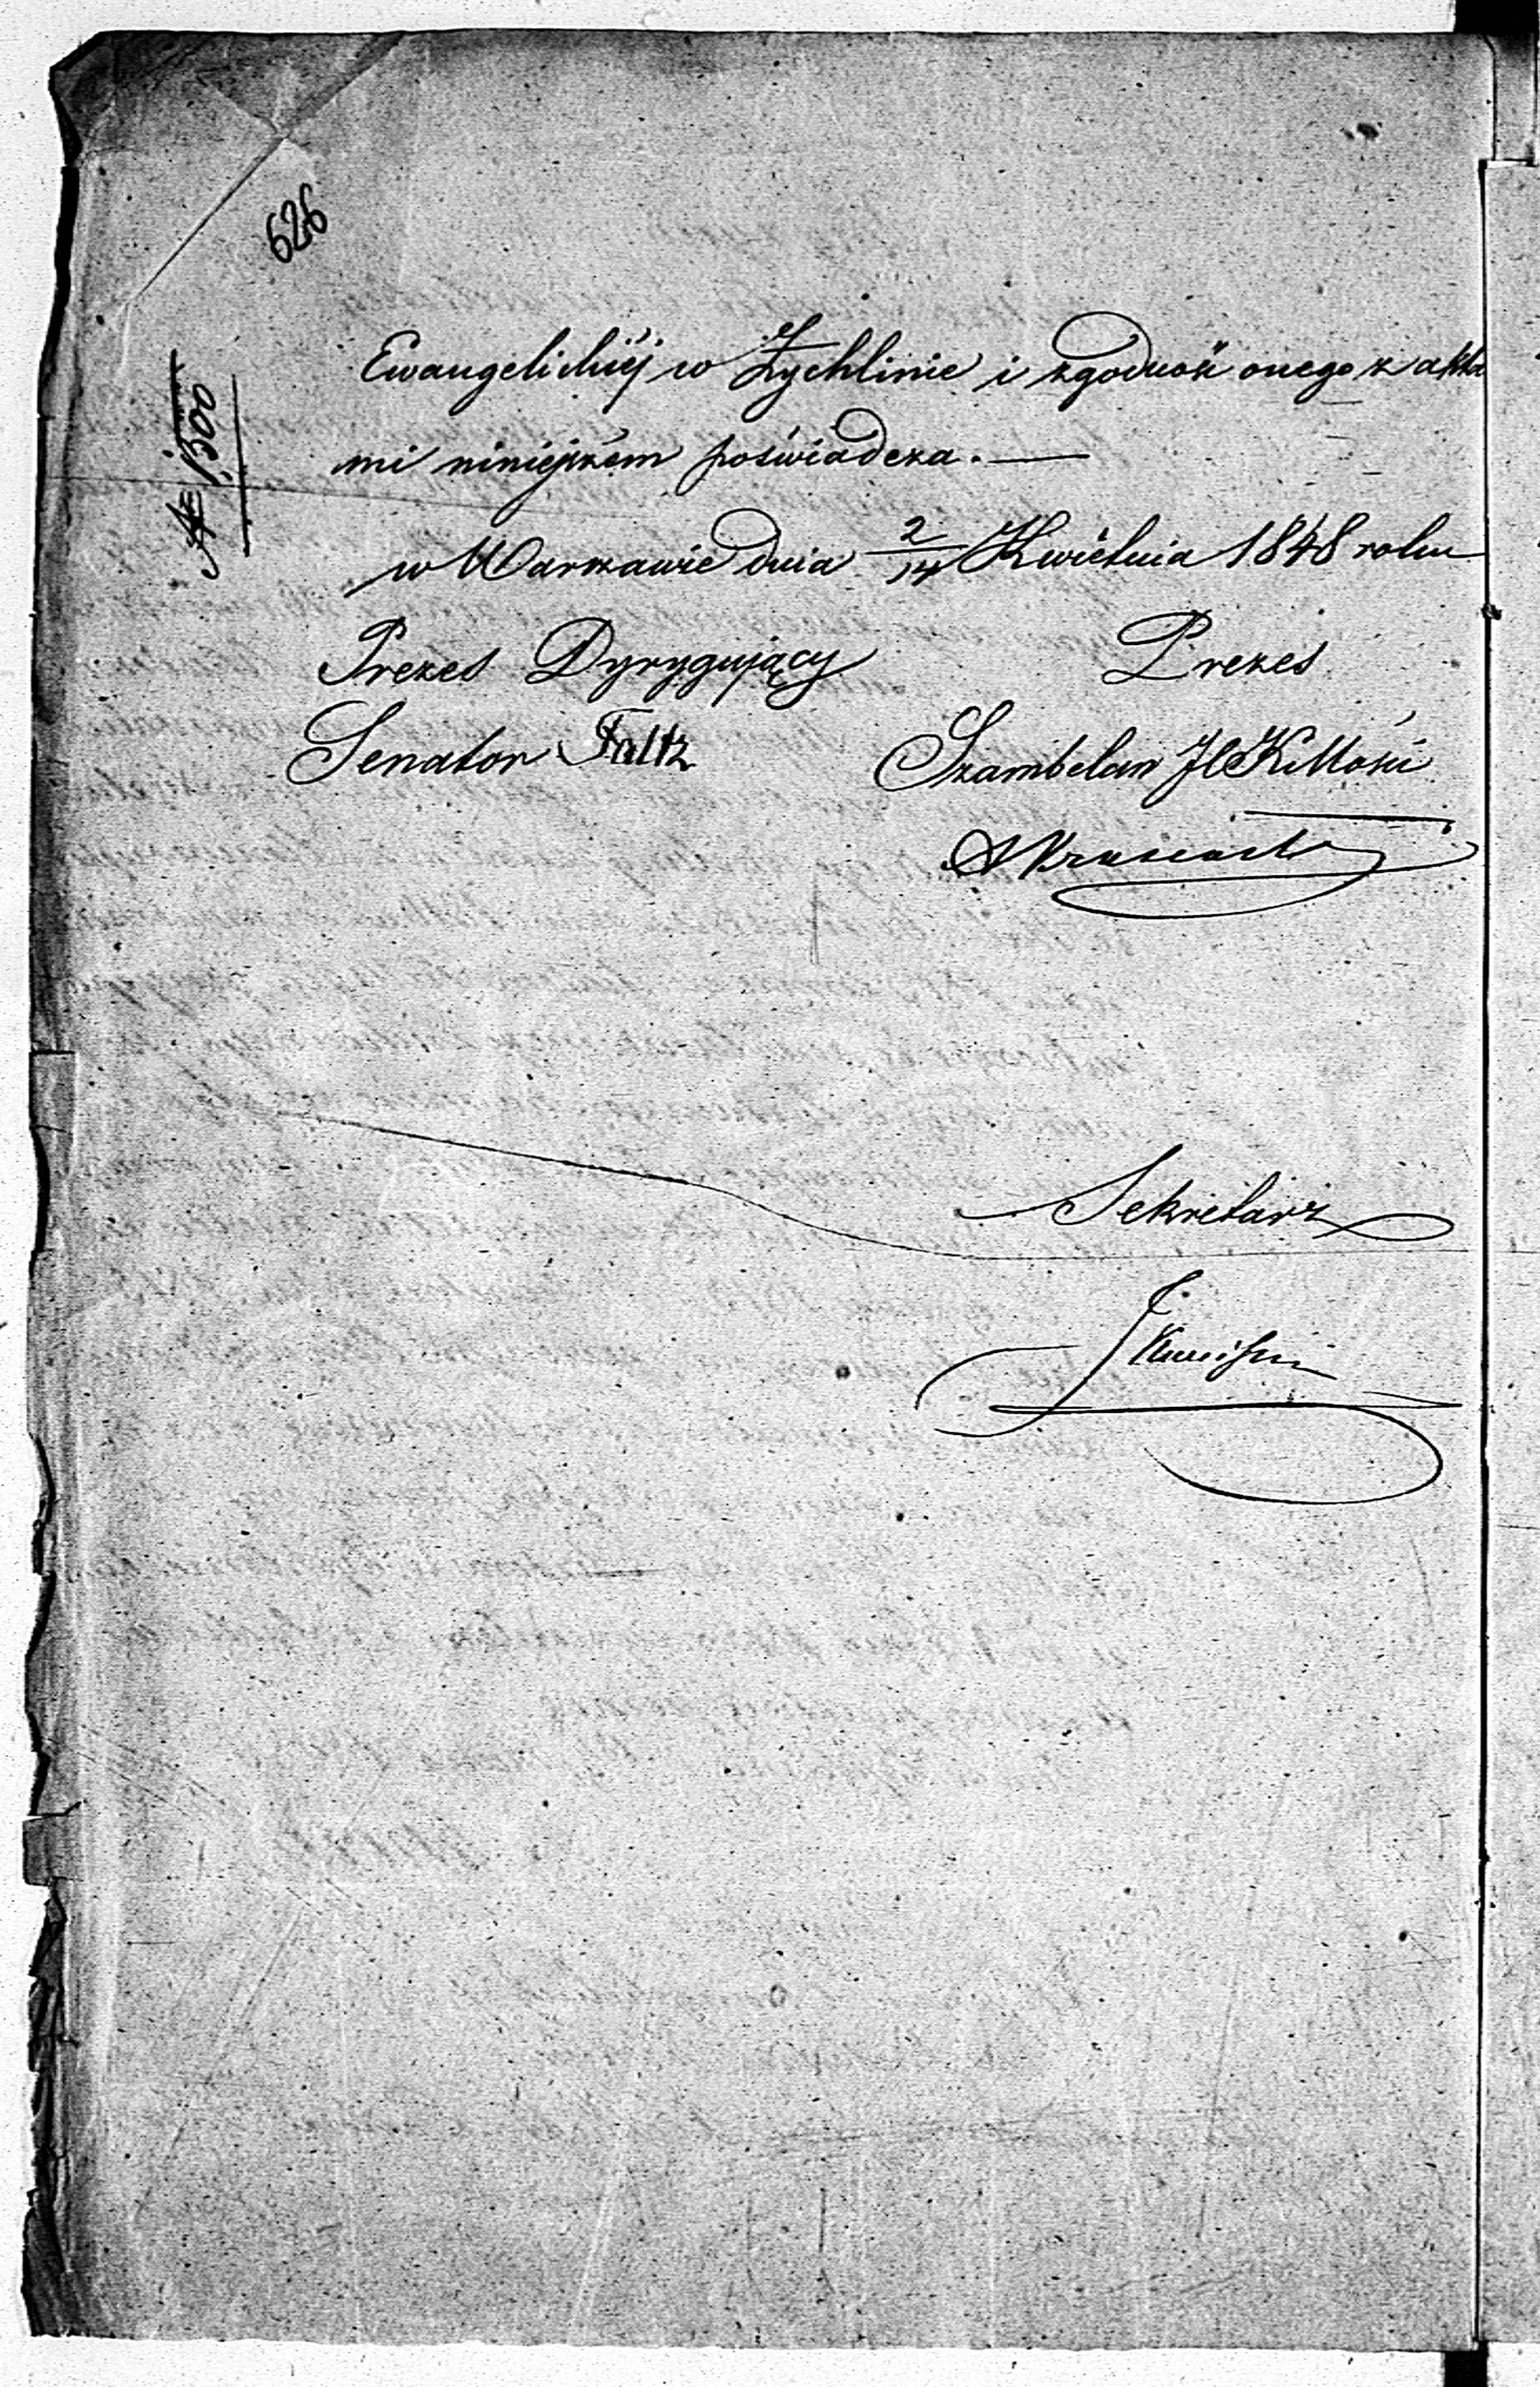 626
№ 1300
Ewangelickiéj w Żychlinie i zgodność onego z akta
mi niniejszém poświadcza. —
w Warszawie dnia 2/14 Kwiétnia 1848 roku
Prezes Dyrygujący Prezes
Senator Faltz Szambelan
Sekretarz